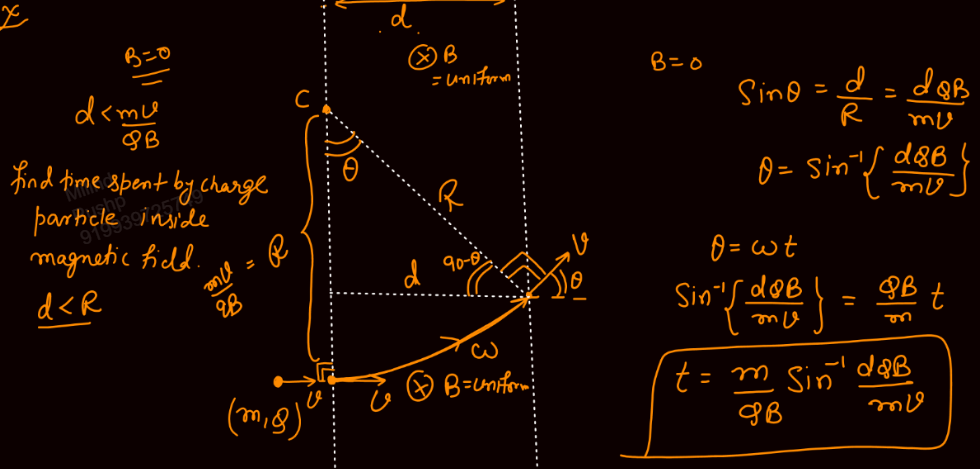 x
B=0
d < mv/qB
find time spent by charge
particle inside
magnetic field.
d < R
mv/qB = R
d
⊗ B
= uniform
C
θ
R
d
90-θ
v
θ
ω
v
v
(m,q)
⊗ B=uniform
B=0
Sinθ = d/R = dqB/mv
θ = Sin⁻¹{dqB/mv}
θ = ωt
Sin⁻¹{dqB/mv} = qB/m t
t = m/qB Sin⁻¹ dqB/mv